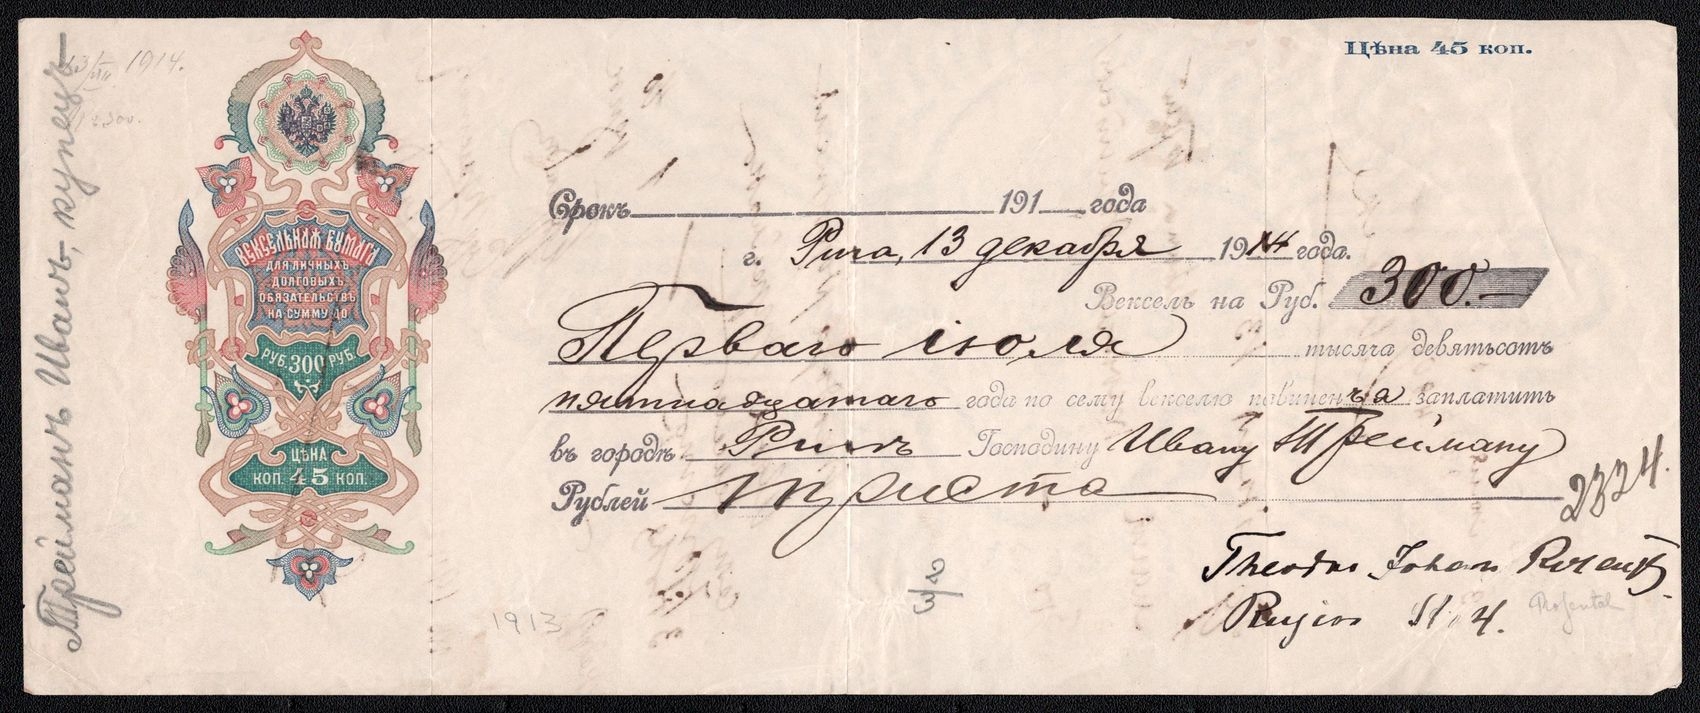 Цѣна 45 коп.
1914.
Трейманъ Иванъ, купецъ
Срокъ 191 года
г. Рига, 13 декабря 1914 года.
Вексель на Руб. 300.—
Перваго іюля тысяча девятьсотъ
пятнадцатаго года по сему векселю повиненъ я заплатить
въ городѣ Ригѣ Господину Ивану Трейману
Рублей триста
2324.
Theodor Johan
Rujien 4.
Rosental
1913
ВЕКСЕЛЬНАЯ БУМАГА
ДЛЯ ЛИЧНЫХЪ
ДОЛГОВЫХЪ
ОБЯЗАТЕЛЬСТВЪ
НА СУММУ ДО
РУБ. 300 РУБ.
ЦѢНА
КОП. 45 КОП.